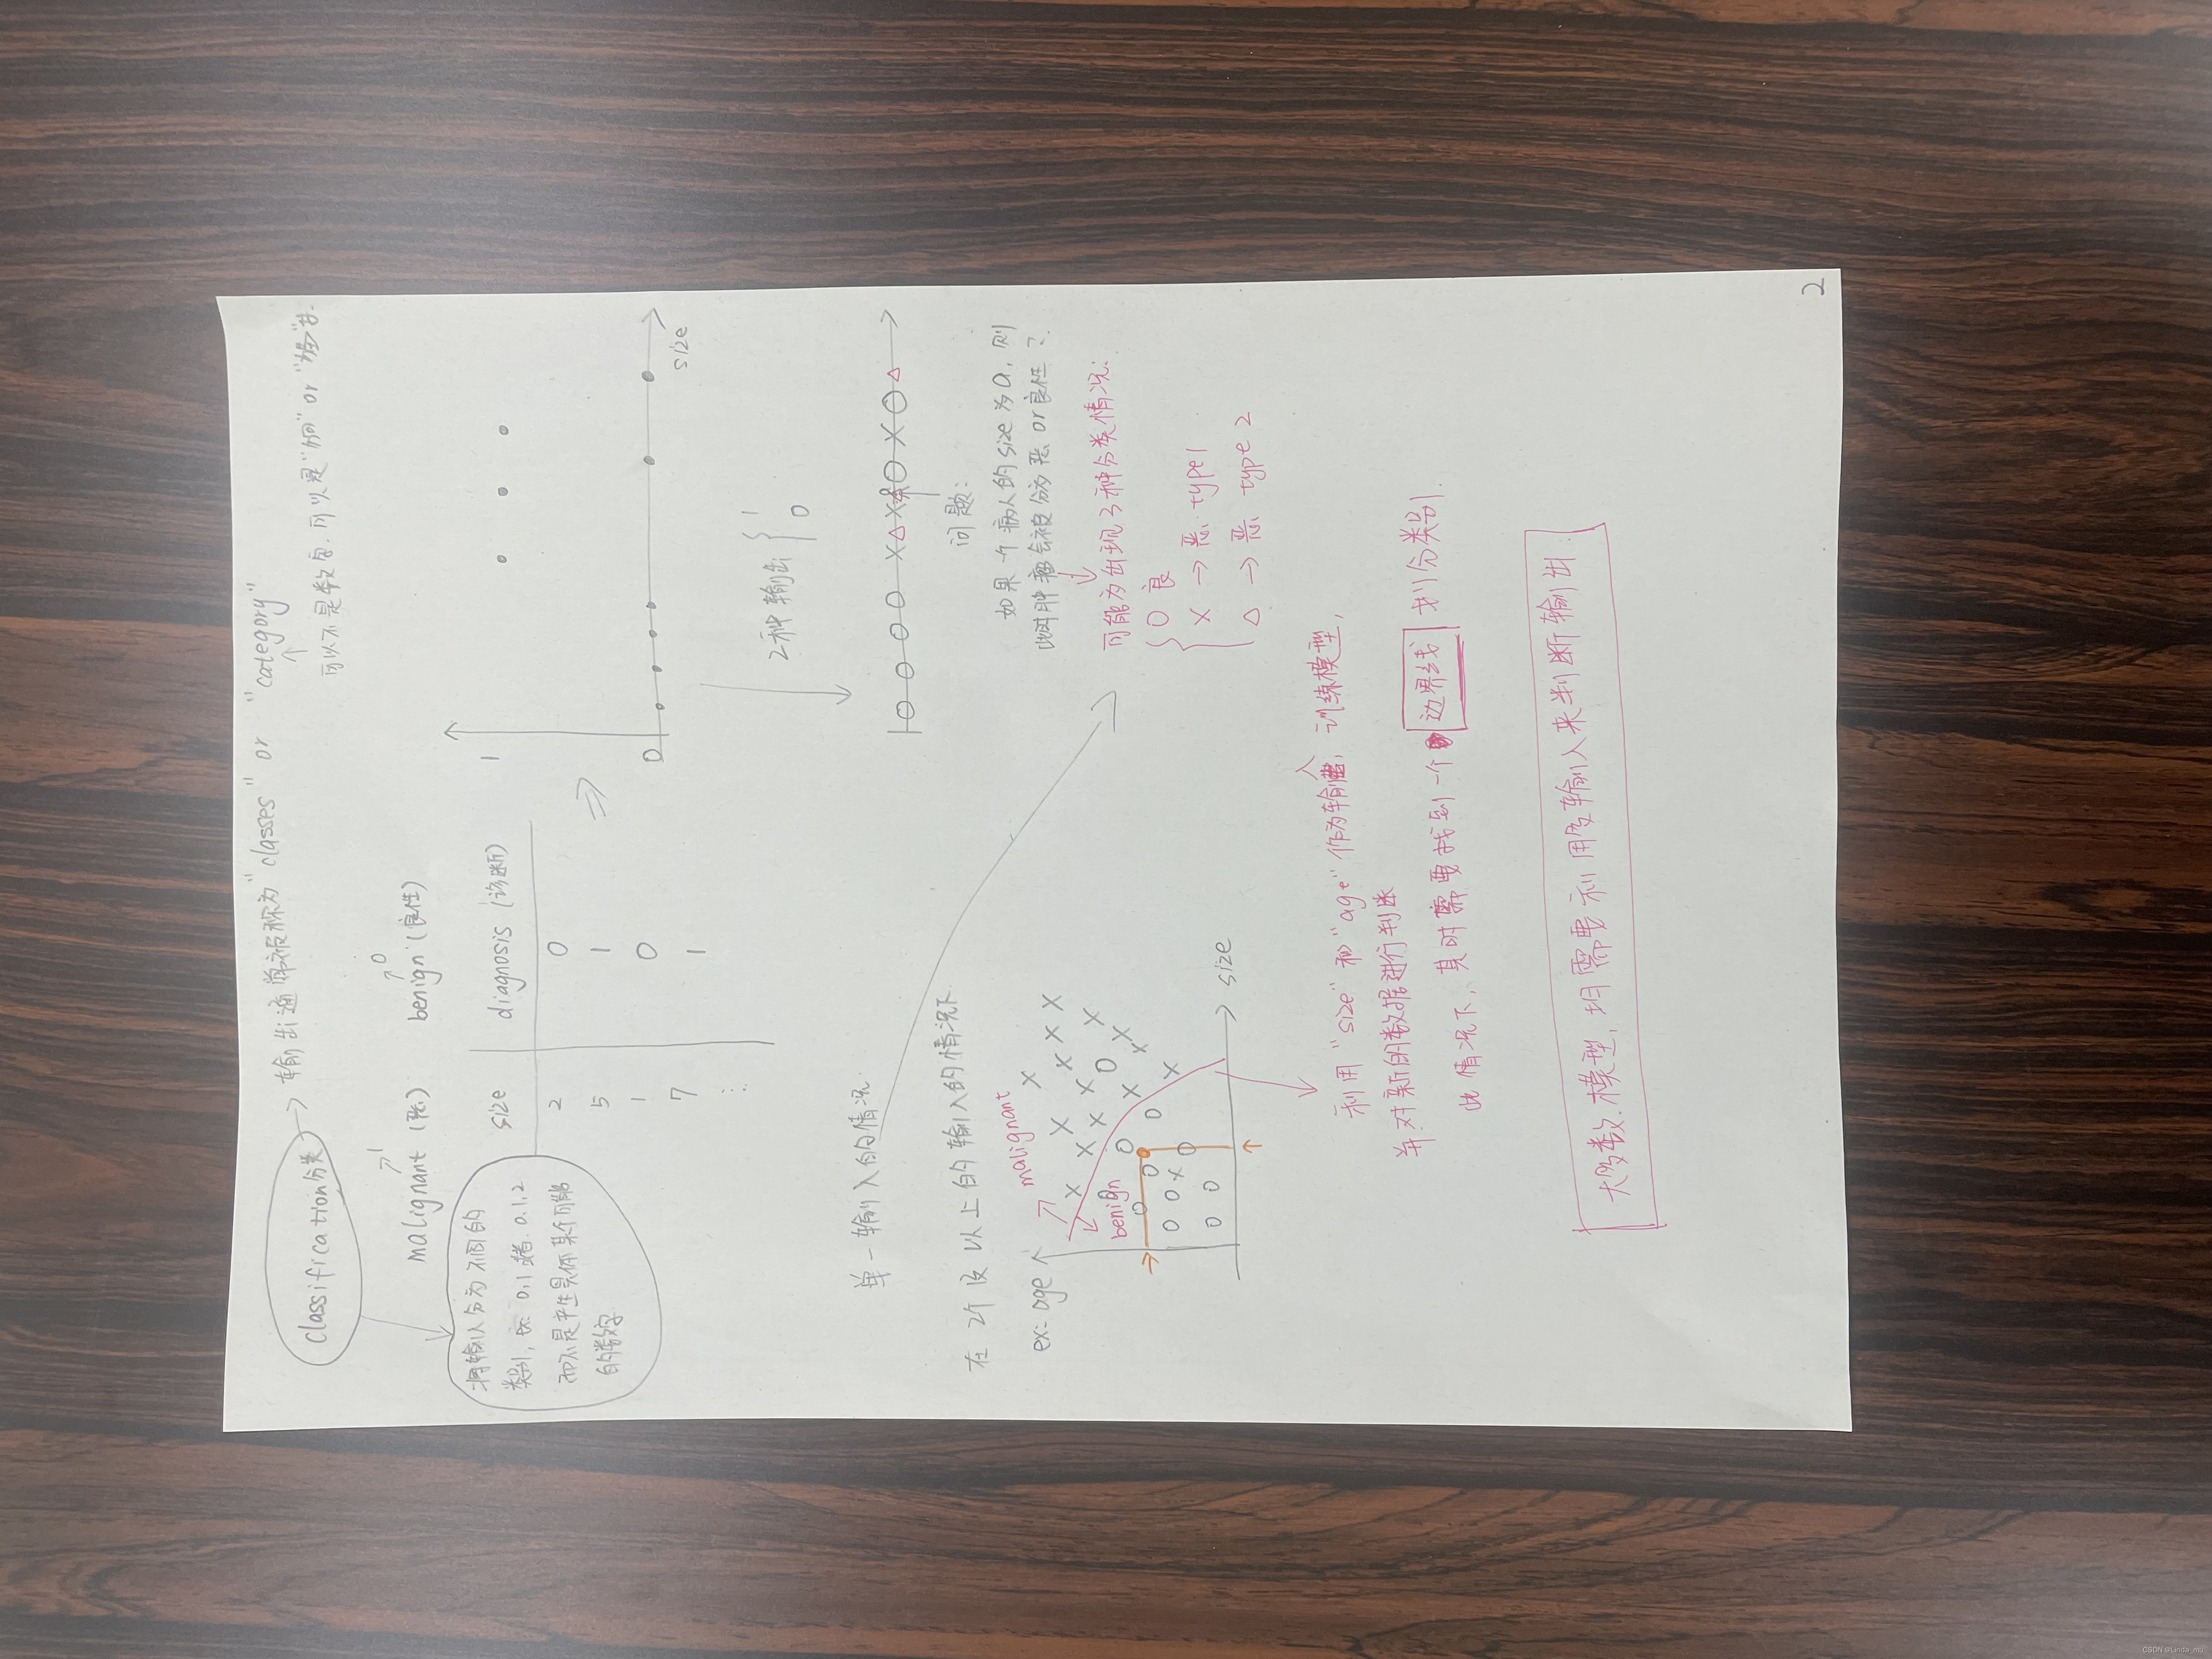 Classification分类 → 输出通常被称为"classes" or "category"
可以不是数字.可以是"狗" or "猫"等.
malignant (恶) 1
benign (良性) 0
将输入分为不同的
类别, 如: 0,1或者 0.1.2
而不是产生具体某个可能
的数字
size diagnosis (诊断)
2 0
5 1
1 0
7 1
⋮
⇒
1
0
size
2种输出 { 1
0
单一输入的情况
问题:
如果一个病人的size为a,则
此肿瘤会被分为恶 or 良性?
可能为出现3种分类情况:
O 良
X → 恶 type1
△ → 恶 type 2
在2个及以上的输入的情况下
ex: age
malignant
benign
size
利用"size"和"age"作为输入, 训练模型,
并对新的数据进行判断
此情况下, 其时需要找到一个 边界线 划分类别.
大多数模型, 均需要利用多输入来判断输出.
2
CSDN @Linda_mu